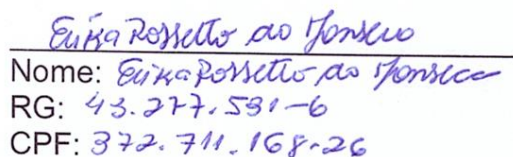 Erika Rossetto da Fonseca
Nome: Erika Rossetto da Fonseca
RG: 43.277.531-6
CPF: 372.711.168-26